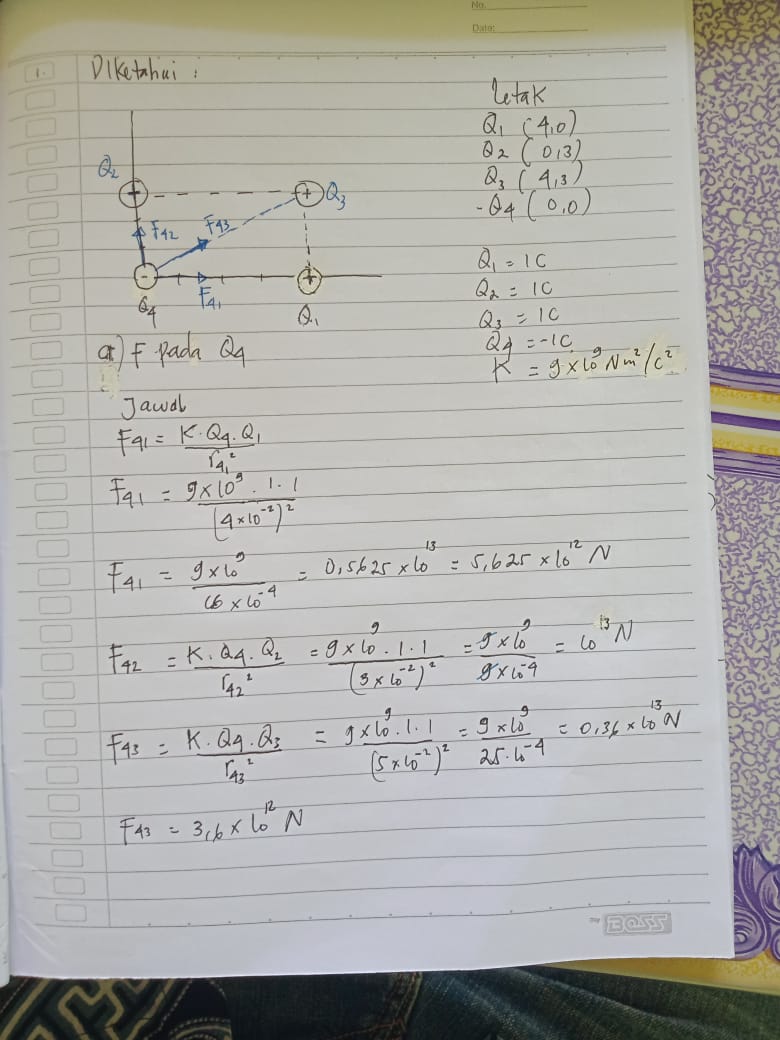 No.
Date:
1. Diketahui :
letak
Q₁ (4,0)
Q₂ (0,3)
Q₃ (4,3)
-Q₄ (0,0)
Q₂
+
+
Q₃
F₄₂
F₄₃
-
+
F₄₁
Q₄
Q₁
Q₁ = 1C
Q₂ = 1C
Q₃ = 1C
Q₄ = -1C
K = 9 x 10⁹ Nm²/C²
a) F pada Q₄
Jawab
F₄₁ = K.Q₄.Q₁ / r₄₁²
F₄₁ = 9x10⁹ . 1 . 1 / (4x10⁻²)²
F₄₁ = 9x10⁹ / 16 x 10⁻⁴ = 0,5625 x 10¹³ = 5,625 x 10¹² N
F₄₂ = K.Q₄.Q₂ / r₄₂² = 9x10⁹ . 1 . 1 / (3 x 10⁻²)² = 9x10⁹ / 9x10⁻⁴ = 10¹³ N
F₄₃ = K.Q₄.Q₃ / r₄₃² = 9x10⁹ . 1 . 1 / (5x10⁻²)² = 9x10⁹ / 25.10⁻⁴ = 0,36 x 10¹³ N
F₄₃ = 3,6 x 10¹² N
my BOSS